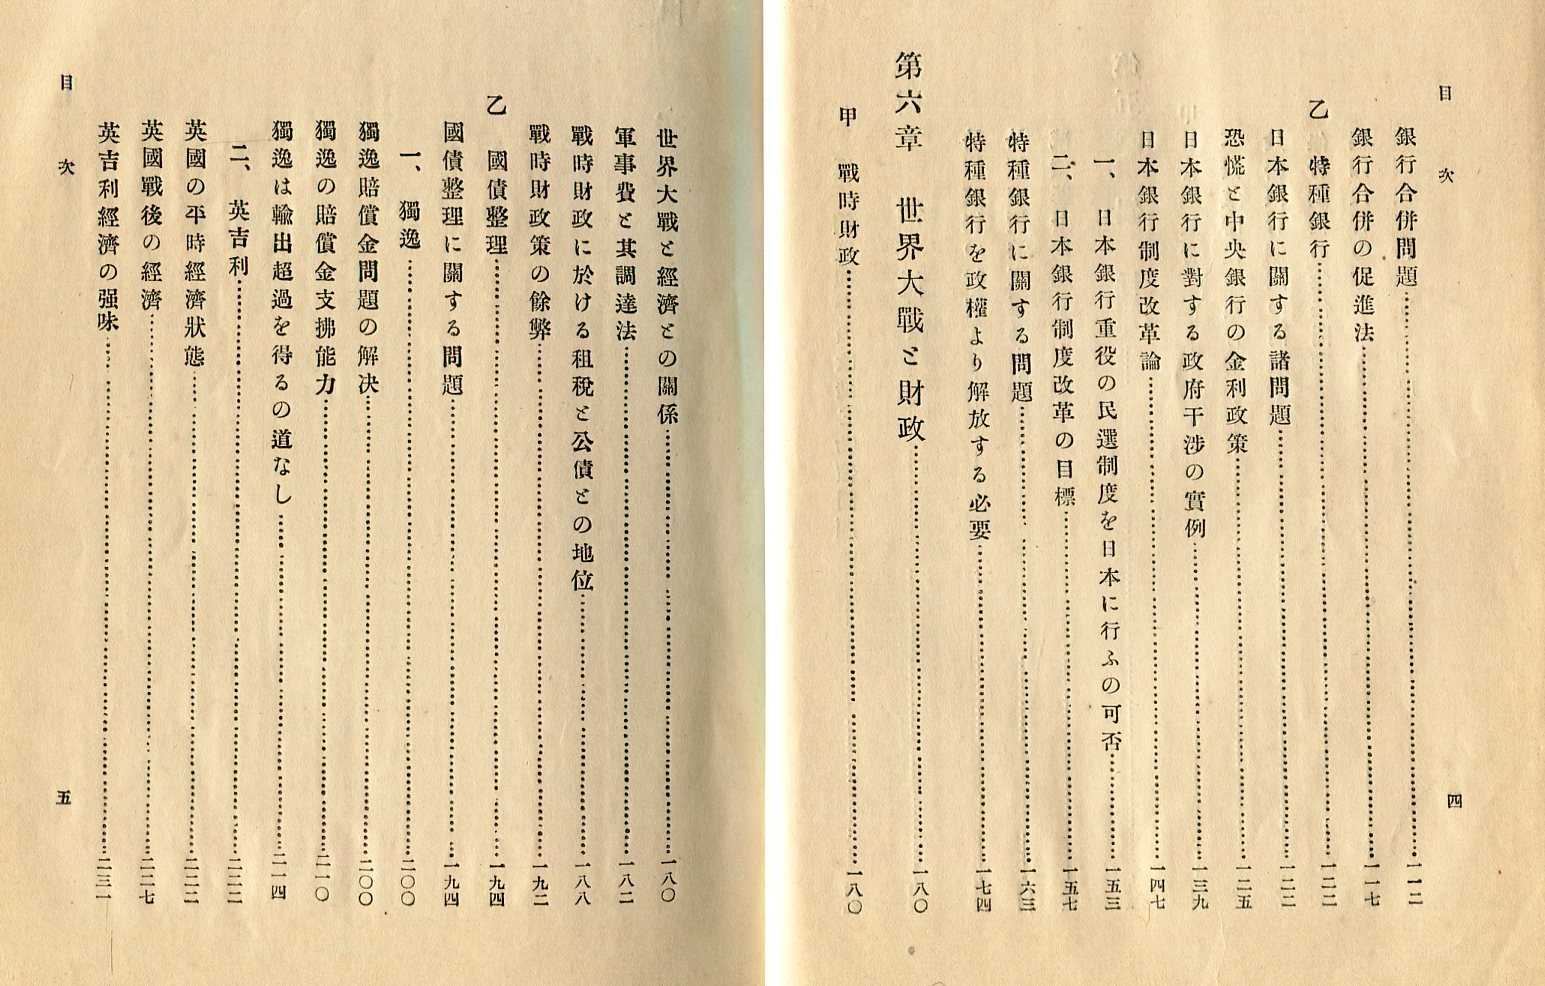 目次 四
銀行合併問題……一一二
銀行合併の促進法……一一七
乙 特種銀行……一二二
日本銀行に關する諸問題……一二二
恐慌と中央銀行の金利政策……一二五
日本銀行に對する政府干涉の實例……一三九
日本銀行制度改革論……一四七
一、日本銀行重役の民選制度を日本に行ふの可否……一五三
二、日本銀行制度改革の目標……一五七
特種銀行に關する問題……一六三
特種銀行を政權より解放する必要……一七四
第六章 世界大戰と財政……一八〇
甲 戰時財政……一八〇
世界大戰と經濟との關係……一八〇
軍事費と其調達法……一八二
戰時財政に於ける租稅と公債との地位……一八八
戰時財政策の餘弊……一九二
乙 國債整理……一九四
國債整理に關する問題……一九四
一、獨逸……二〇〇
獨逸賠償金問題の解决……二〇〇
獨逸の賠償金支拂能力……二一〇
獨逸は輸出超過を得るの道なし……二一四
二、英吉利……二二二
英國の平時經濟狀態……二二二
英國戰後の經濟……二二七
英吉利經濟の强味……二三一
目次 五